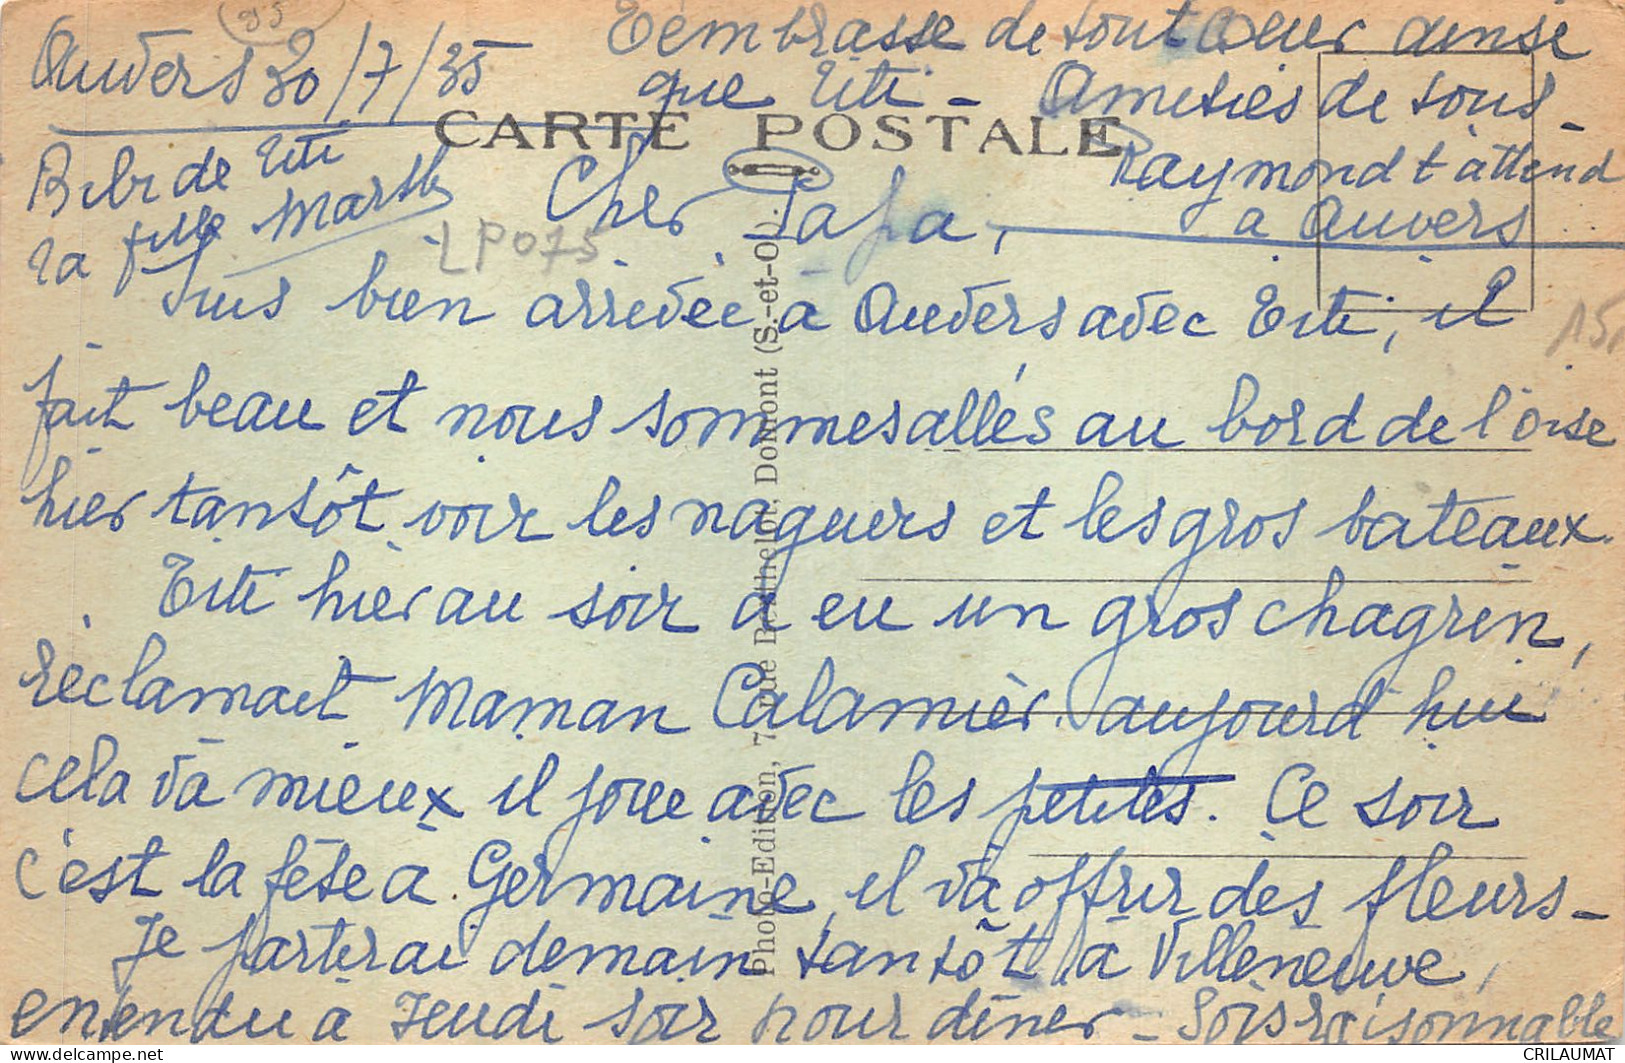 Auvers 30/7/35
CARTE POSTALE
Cher Papa,
Suis bien arrivée à Auvers avec Titi, il
fait beau et nous sommes allés au bord de l'oise
hier tantôt voir les nageurs et les gros bateaux.
Titi hier au soir a eu un gros chagrin,
réclamait Maman Calamier. aujourd'hui
cela va mieux il joue avec les petites. Ce soir
c'est la fête à Germaine, il va offrir des fleurs_
Je partirai demain tantôt à Villeneuve,
entendu à Jeudi soir pour dîner_ Sois raisonnable
T'embrasse de tout coeur ainsi
que Titi_ Amitiés de tous_
Raymond t'attend
a Auvers
de Titi
ta fille Marthe
LP075
95
15,
Photo-Edition, 7, rue Berthelot, Domont (S.-et-O.).
CRILAUMAT